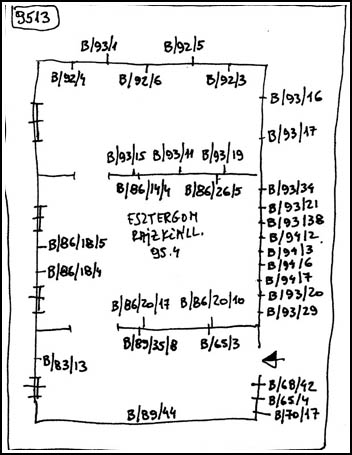 9513
B/93/1 B/92/5
B/92/4 B/92/6 B/92/3
B/93/16
B/93/17
B/93/15 B/93/11 B/93/19
B/86/14/4 B/86/26/5
B/93/34
B/93/21
B/93/38
B/94/2
B/94/3
B/94/6
B/94/7
B/93/20
B/93/29
ESZTERGOM
RAJZKIÁLL.
95.4
B/86/18/5
B/86/18/4
B/86/20/17 B/86/20/10
B/89/35/8 B/65/3
B/83/13
B/68/42
B/65/4
B/70/17
B/89/44